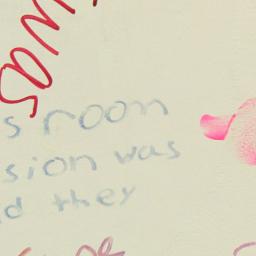 was
s room
sion was
d they